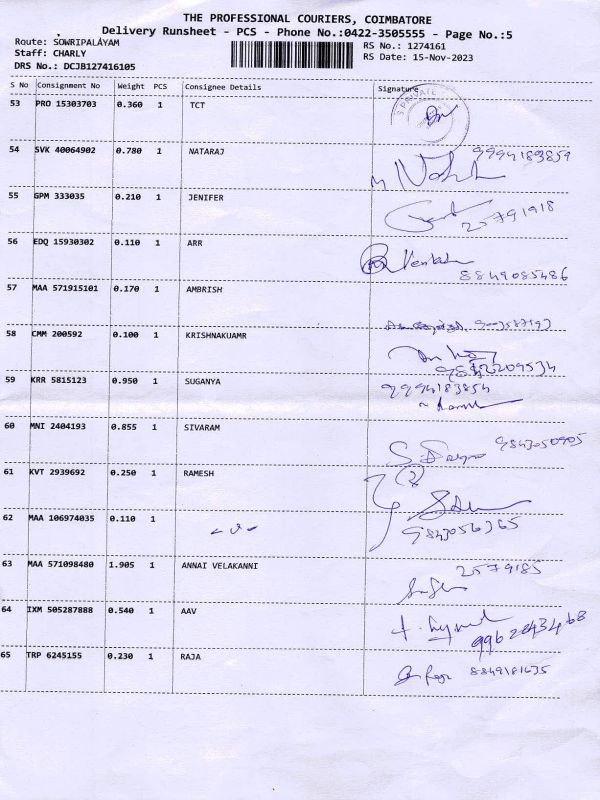 THE PROFESSIONAL COURIERS, COIMBATORE
Delivery Runsheet - PCS - Phone No.:0422-3505555 - Page No.:5
Route: SOWRIPALAYAM
RS No.: 1274161
Staff: CHARLY
RS Date: 15-Nov-2023
DRS No.: DCJB127416105
S No Consignment No Weight PCS Consignee Details Signature
53 PRO 15303703 0.360 1 TCT
PRIVATE
54 SVK 40064902 0.780 1 NATARAJ 9994183859
55 GPM 333035 0.210 1 JENIFER 25791918
56 EDQ 15930302 0.110 1 ARR Venkat
8849085486
57 MAA 571915101 0.170 1 AMBRISH
58 CMM 200592 0.100 1 KRISHNAKUAMR
9842209534
59 KRR 5815123 0.950 1 SUGANYA 9994183854
60 MNI 2404193 0.855 1 SIVARAM 9843050905
61 KVT 2939692 0.250 1 RAMESH (2)
62 MAA 106974035 0.110 1
9843056365
63 MAA 571098480 1.905 1 ANNAI VELAKANNI 2579185
64 IXM 505287888 0.540 1 AAV
9962843468
65 TRP 6245155 0.230 1 RAJA 8849181635